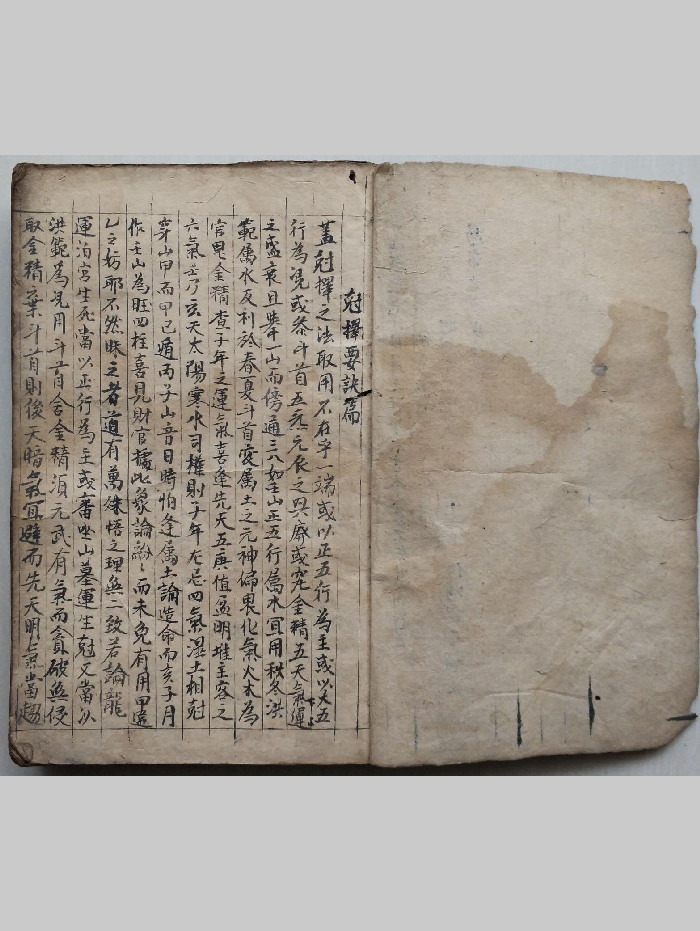 尅擇要訣篇
蓋尅擇之法取用不在乎一端或以正五行為主或以大五
行為視或叅斗首五炁元辰之興廢或究金精五天氣運
之盛衰且舉一山而傍通三八如壬山正五行屬水宜用秋冬洪
範屬水反利於春夏斗首變属土之元神偏畏化氣火木為
官鬼金精查子年之運氣喜逢先天五庚值孟明堆主客之
六氣壬乃玄天太陽寒水司權則子年尤忌四氣濕土相尅
穿山甲而甲己遁丙子山音日時怕逢属土論造命而亥子月
作壬山為旺四柱喜見財官據此象論紛々而未免有用甲違
乙之妨耶不然昧之者道有萬殊悟之理無二致若論龍
運泊宮生死當以正行為主或審坐山墓運生尅又當以
洪範為况用斗首舍金精須元武有氣而貪破無侵
取金精棄斗首則後天暗氣宜避而先天明氣當趨